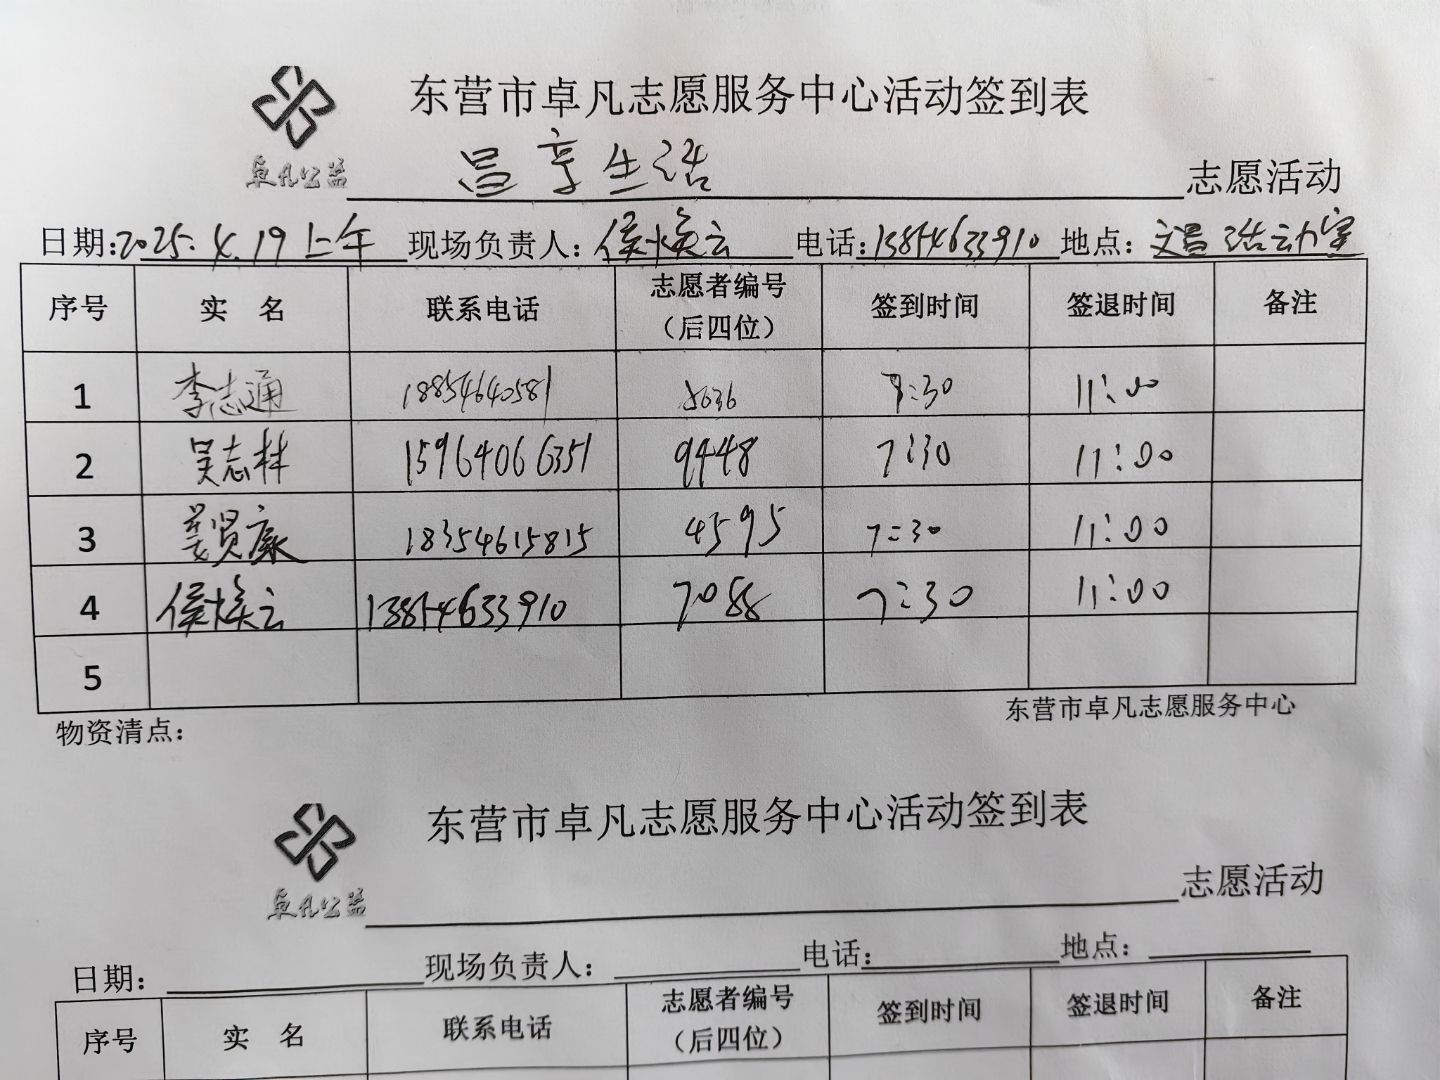 东营市卓凡志愿服务中心活动签到表
卓凡公益 昌享生活 志愿活动
日期:2025.4.19上午 现场负责人:侯焕云 电话:13854633910 地点:文昌活动室
序号 实 名 联系电话 志愿者编号(后四位) 签到时间 签退时间 备注
1 李志通 18854640581 8636 7:30 11:00
2 吴志林 15964066351 9448 7:30 11:00
3 姜贤康 18354615815 4595 7:30 11:00
4 侯焕云 13854633910 7088 7:30 11:00
5
物资清点: 东营市卓凡志愿服务中心
东营市卓凡志愿服务中心活动签到表
卓凡公益 志愿活动
日期: 现场负责人: 电话: 地点:
序号 实 名 联系电话 志愿者编号(后四位) 签到时间 签退时间 备注